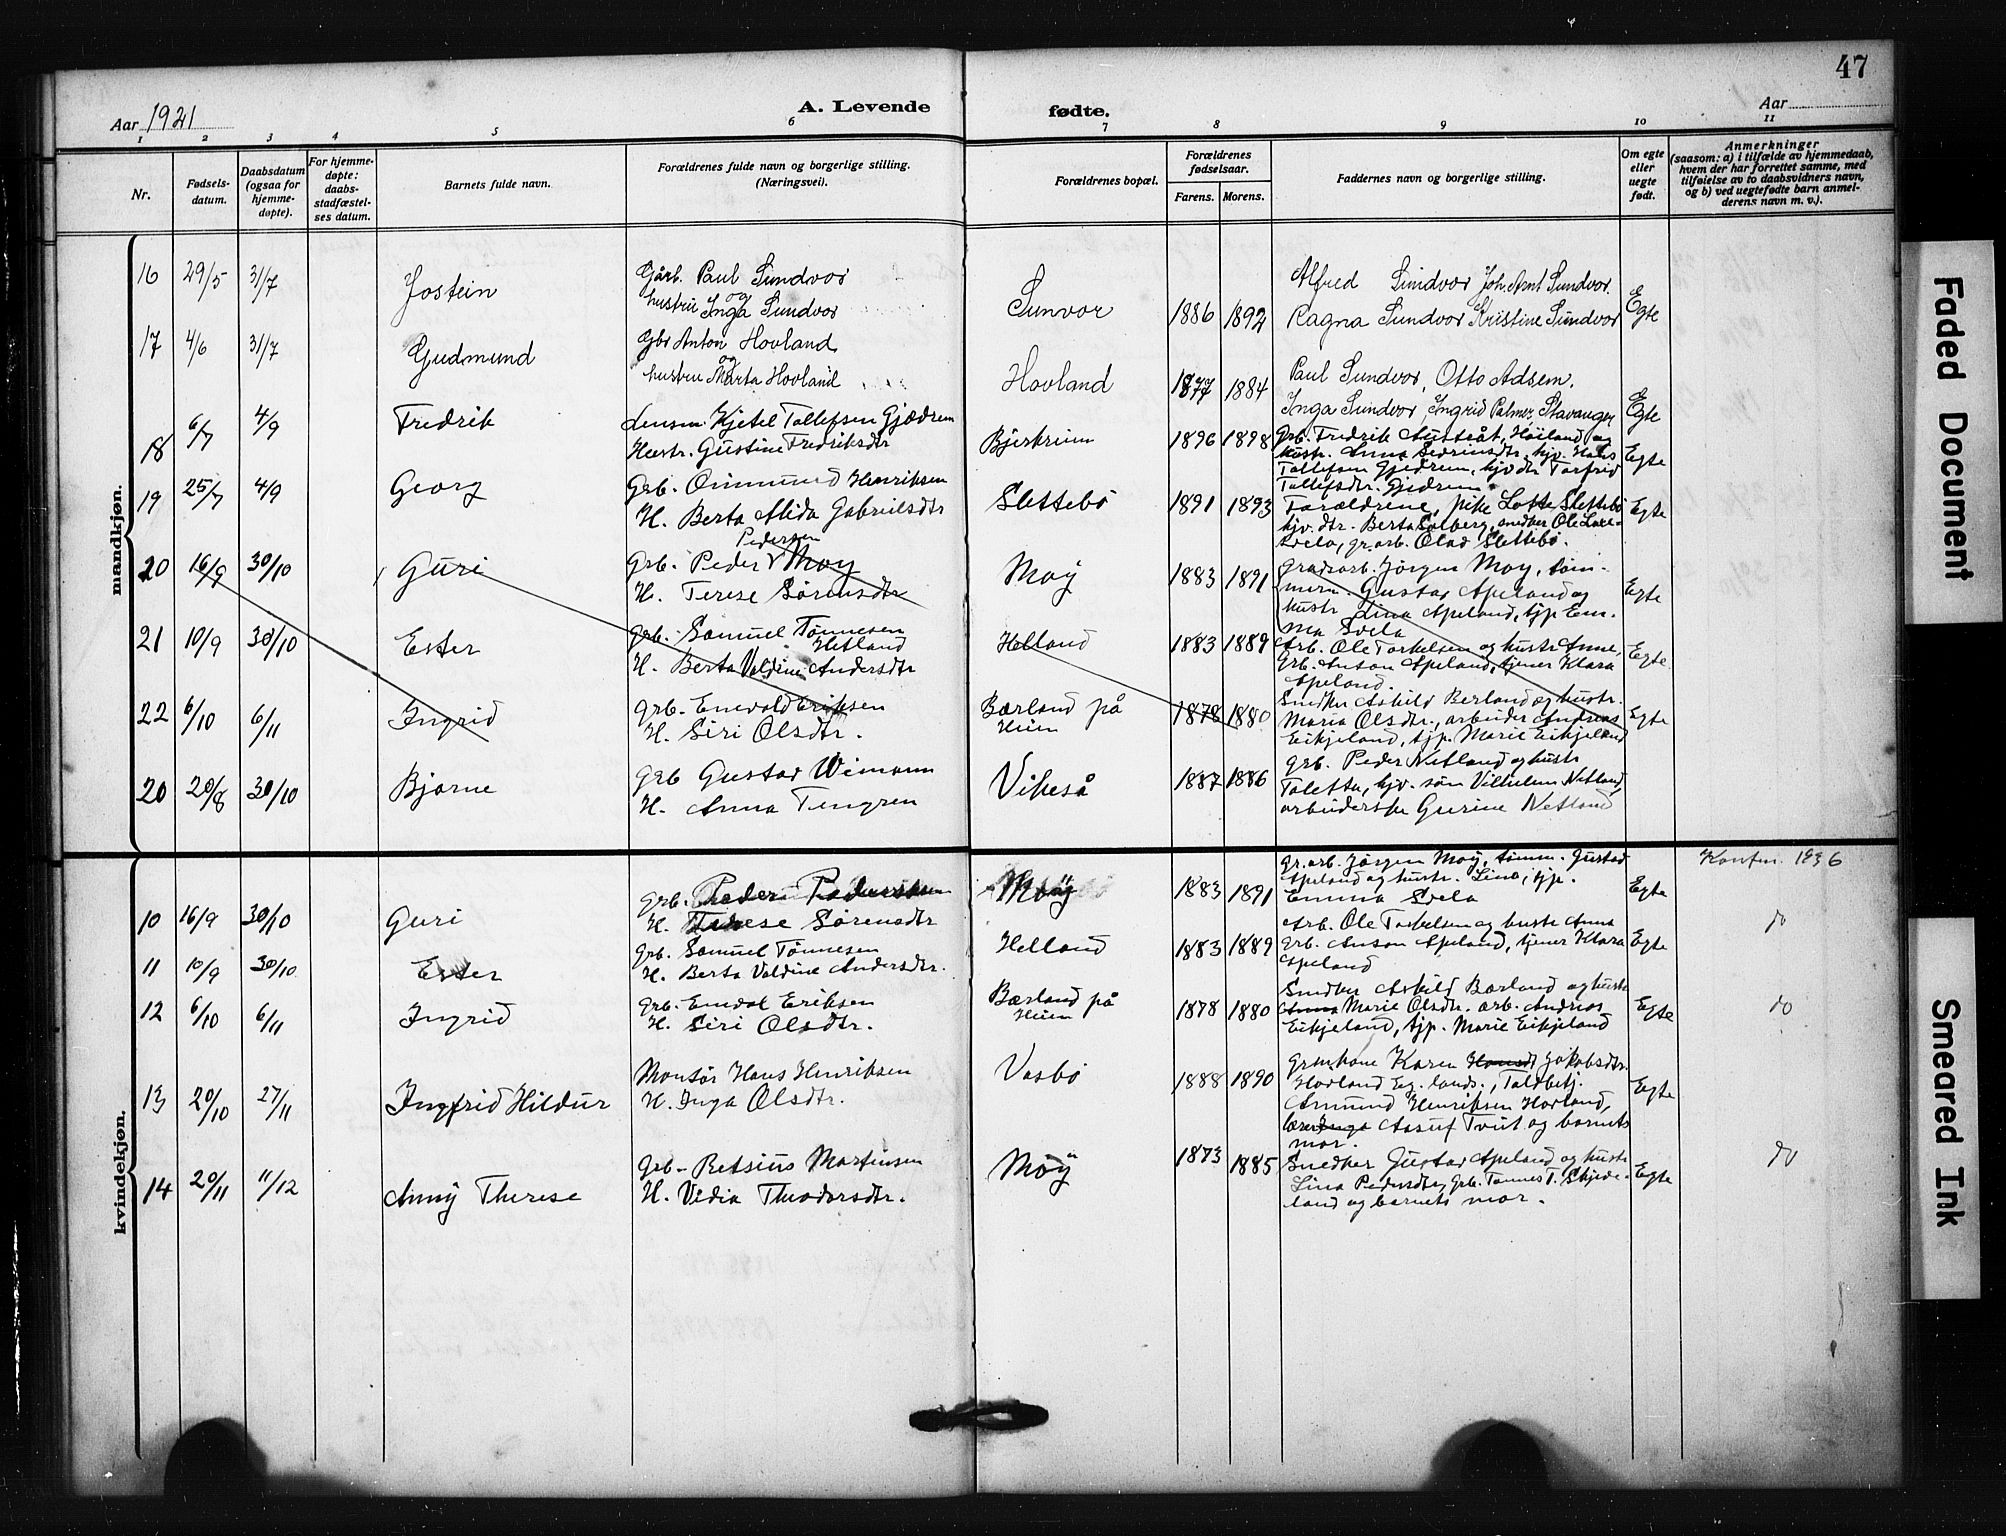 47
Aar 1921
A. Levende fødte.
Aar
1 2 3 4 5 6 7 8 9 10 11
Nr.
Fødsels-
datum.
Daabsdatum
(ogsaa for
hjemme-
døpte).
For hjemme-
døpte:
daabs-
stadfæstel-
ses datum.
Barnets fulde navn.
Forældrenes fulde navn og borgerlige stilling.
(Næringsvei).
Forældrenes bopæl.
Forældrenes
fødselsaar.
Farens. Morens.
Faddernes navn og borgerlige stilling.
Om egte
eller
uegte
født.
Anmerkninger
(saasom: a) i tilfælde av hjemmedaab,
hvem der har forrettet samme, med
tilføielse av to daabsvidners navn,
og b) ved uegtefødte barn anmel-
derens navn m. v.).
mandkjøn.
16 29/5 31/7 Jostein
Gårb. Paul Sundvor
og
hustru Inga Sundvor
Sunvor 1886 1892
Alfred Sundvor Joh. Arnt Sundvor.
Ragna Sundvor Kristine Sundvor
Egte
17 4/6 31/7 Gudmund
Gbr Anton Hovland
og
hustru Marta Hovland
Hovland 1877 1884
Paul Sundvor, Otto Adsem.
Inga Sundvor, Ingrid Palmer, Stavanger
Egte
18 6/7 4/9 Fredrik
Lensm. Kjetel Tollefsen Gjedrem
Hustr. Gustine Fredriksdtr
Bjerkreim 1896 1898
Grb. Fredrik Austråt, Høiland og
hustr. Anna Sevrinsdtr, hjv. Hans
Tollefsen Gjedrem, hjv dtr Torfrid
Tollefsdtr. Gjedrem.
Egte
19 25/7 4/9 Georg
Grb. Ommund Henriksen
H. Berta Alida Gabrielsdtr
Slettebø 1891 1893
Forældrene, pike Lotte Slettebø
hjv. dtr. Berta Solberg, snedker Ole
Svela, gr.arb. Olav Slettebø.
Egte
20 16/9 30/10 Guri
Pedersen
Grb. Peder Moy
H. Terese Sørensdtr
Moy 1883 1891
gradsarb. Jørgen Moy, tøm-
merm. Gustav Apeland og
hustr Lina Apeland, tjp Em-
ma Svela
Egte
21 10/9 30/10 Ester
Grb. Samuel Tønnesen
Hetland
H. Berta Valdine Andersdtr
Helland 1883 1889
Arb. Ole Torkelsen og hustr Anne,
Grb. Anton Apeland, tjener Klara
Apeland.
Egte
22 6/10 6/11 Ingrid
Grb. Emvald Eriksen
H. Siri Olsdtr.
Bærland på
Heien
1878 1880
Snedker Askild Berland og hustr.
Maria Olsdtr., arbeider Andreas
Eikjeland, tjp. Marie Eikjeland
Egte
20 20/8 30/10 Bjarne
Grb Gustav Wimann
H. Anna Tengren
Vikeså 1887 1886
Grb. Peder Netland og hustr
Toletta, hjv. søn Vilhelm Netland,
arbeiderske Gurine Netland
kvindekjøn.
10 16/9 30/10 Guri
Grb. Peder Pedersen
H. Terese Sørensdtr
Moy 1883 1891
Gr.arb. Jørgen Moy, tømm. Gustav
Apeland og hustr. Lina, tjp.
Emma Svela
Egte
Konfm. 1936
11 10/9 30/10 Ester
Grb. Samuel Tønnesen
H. Berta Valdine Andersdtr.
Helland 1883 1889
Arb. Ole Torkelsen og hustr Anna
Grb. Anton Apeland, tjener Klara
Apeland
Egte
do
12 6/10 6/11 Ingrid
Grb. Emval Eriksen
H. Siri Olsdtr.
Bærland på
Heien
1878 1880
Snedker Askild Bærland og hustr
Anna Marie Olsdtr. arb. Andreas
Eikjeland, tjp. Marie Eikjeland
Egte
do
13 20/10 27/11 Ingfrid Hildur
Montør Hans Henriksen
H. Inga Olsdtr.
Vasbø 1888 1890
Grmkone Karen Hansdt Jakobsdtr.
Hovland Eg. lands., Toldbetj.
Ommund Henriksen Hovland,
Inga Aasuf Tveit og barnets
mor.
Egte
14 20/11 11/12 Anny Therese
Grb. Betsius Martinsen
H. Vedia Theodorsdtr.
Moy 1873 1885
Snedker Gustav Apeland og hustr
Lina Pedersdtr, Grb. Tønnes T. Skjeve-
land og barnets mor.
Egte
do
Faded Document
Smeared Ink